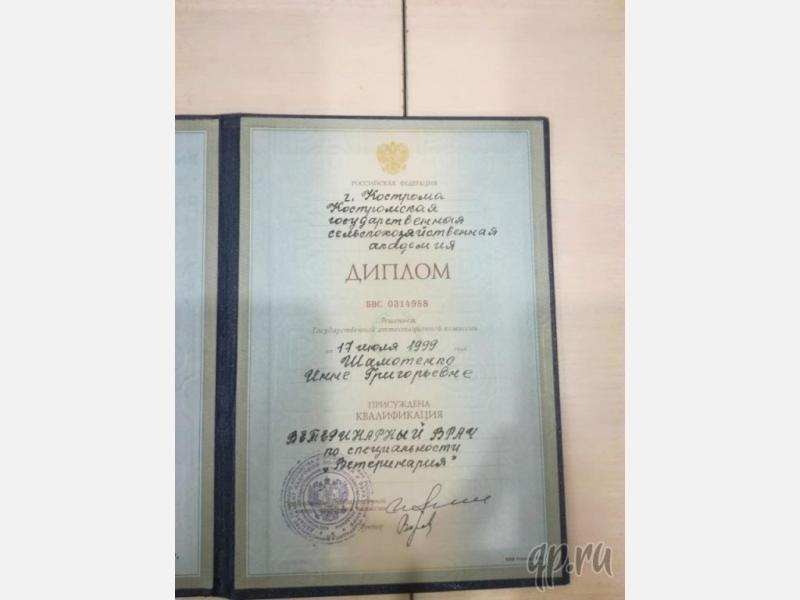 РОССИЙСКАЯ ФЕДЕРАЦИЯ
г. Кострома
Костромская
государственная
сельскохозяйственная
академия
ДИПЛОМ
БВС 0314988
Решением
Государственной аттестационной комиссии
от 17 июля 1999 года
Шамотенко
Инне Григорьевне
ПРИСУЖДЕНА
КВАЛИФИКАЦИЯ
ВЕТЕРИНАРНЫЙ ВРАЧ
по специальности
"Ветеринария"
qp.ru